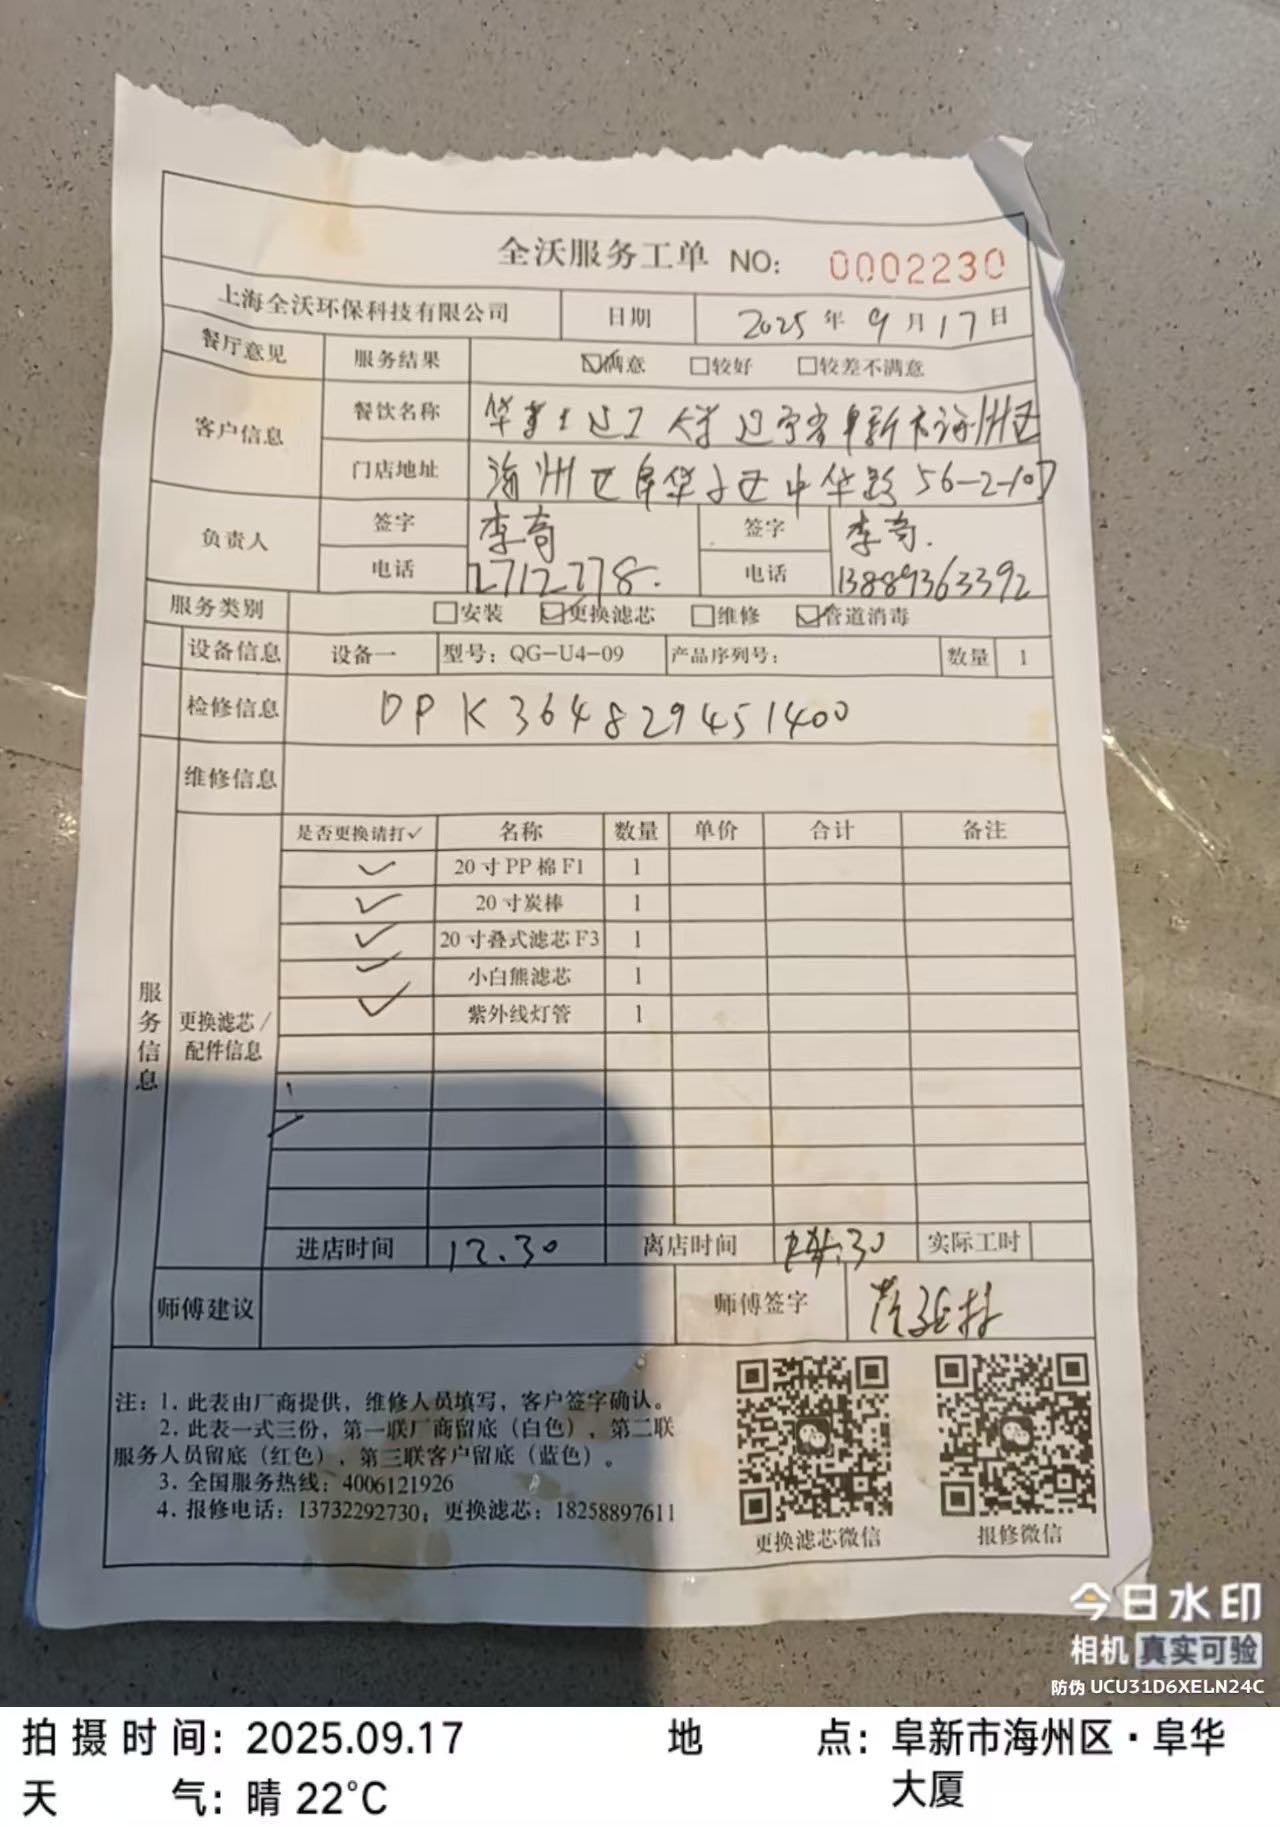 全沃服务工单 NO: 0002230
上海全沃环保科技有限公司 日期 2025年9月17日
餐厅意见 服务结果 ☑满意 □较好 □较差不满意
客户信息 餐饮名称 华莱士 辽宁省阜新市海州区
门店地址 海州区阜华 中华路56-2-107
负责人 签字 李奇 签字 李奇.
电话 2712778. 电话 13889363392
服务类别 □安装 ☑更换滤芯 □维修 ☑管道消毒
设备信息 设备一 型号：QG-U4-09 产品序列号： 数量 1
检修信息 DPK364829451400
维修信息
服务信息
更换滤芯/配件信息
是否更换请打✓ 名称 数量 单价 合计 备注
✓ 20寸PP棉F1 1
✓ 20寸炭棒 1
✓ 20寸叠式滤芯F3 1
✓ 小白熊滤芯 1
✓ 紫外线灯管 1
进店时间 12.30 离店时间 实际工时
师傅建议 师傅签字
注：1. 此表由厂商提供，维修人员填写，客户签字确认。
2. 此表一式三份，第一联厂商留底（白色），第二联
服务人员留底（红色），第三联客户留底（蓝色）。
3. 全国服务热线：4006121926
4. 报修电话：13732292730；更换滤芯：18258897611
更换滤芯微信 报修微信
今日水印
相机 真实可验
防伪 UCU31D6XELN24C
拍摄时间：2025.09.17 地点：阜新市海州区·阜华
天气：晴 22°C 大厦